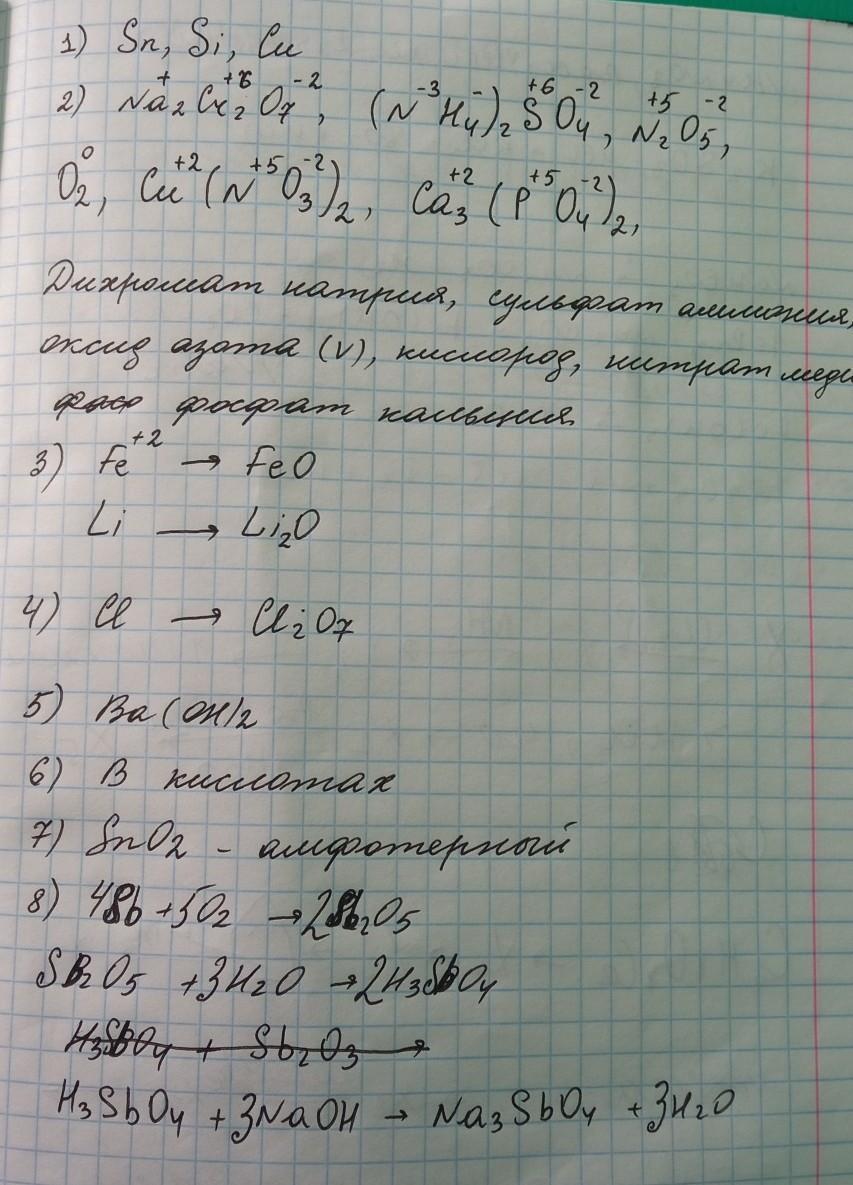 1) Sn, Si, Cu
2) Na₂⁺Cr₂⁺⁶O₇⁻², (N⁻³H₄⁻)₂S⁺⁶O₄⁻², N₂⁺⁵O₅⁻²,
O₂⁰, Cu⁺²(N⁺⁵O₃⁻²)₂, Ca₃⁺²(P⁺⁵O₄⁻²)₂,
Дихромат натрия, сульфат аммония,
оксид азота (V), кислород, нитрат меди
фосфат кальция
3) Fe⁺² → FeO
Li → Li₂O
4) Cl → Cl₂O₇
5) Ba(OH)₂
6) В кислотах
7) SnO₂ - амфотерный
8) 4Sb + 5O₂ → 2Sb₂O₅
Sb₂O₅ + 3H₂O → 2H₃SbO₄
H₃SbO₄ + Sb₂O₃ →
H₃SbO₄ + 3NaOH → Na₃SbO₄ + 3H₂O